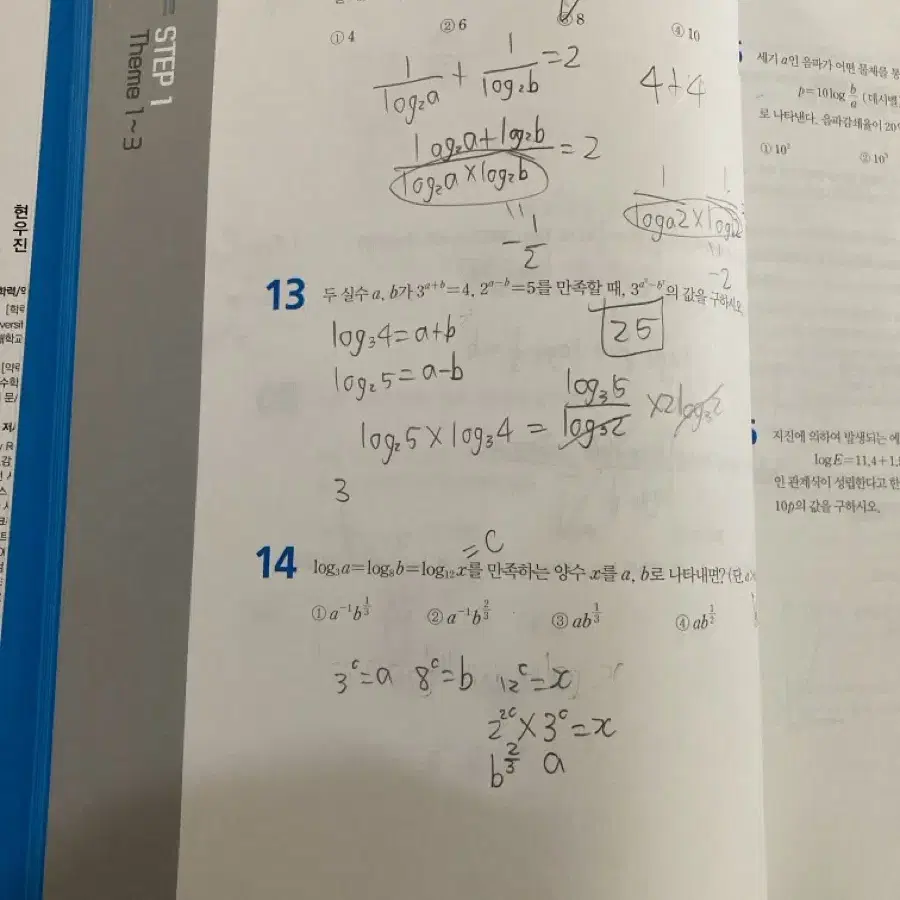 STEP 1
Theme 1~3
현우진
① 4
② 6
8
④ 10
1/log₂a + 1/log₂b = 2
4+4
log₂a+log₂b / log₂a×log₂b = 2
-1/2
-2
13 두 실수 a, b가 3^{a+b}=4, 2^{a-b}=5를 만족할 때, 3^{a²-b²}의 값을 구하시오.
25
log₃4=a+b
log₂5=a-b
log₂5×log₃4 = log₃5/log₃2 ×2log₃2
3
=C
14 log₃a=log₈b=log₁₂x를 만족하는 양수 x를 a, b로 나타내면? (단,
① a⁻¹b^{1/3}
② a⁻¹b^{2/3}
③ ab^{1/3}
④ ab^{1/2}
3^c=a 8^c=b 12^c=x
2^{2c}×3^c=x
b^{2/3} a
세기 a인 음파가 어떤 물체를
p=10log b/a (데시벨)
로 나타낸다. 음파감쇄율이 20
① 10²
② 10³
지진에 의하여 발생되는 에
logE=11.4+1.
인 관계식이 성립한다고 한
10p의 값을 구하시오.